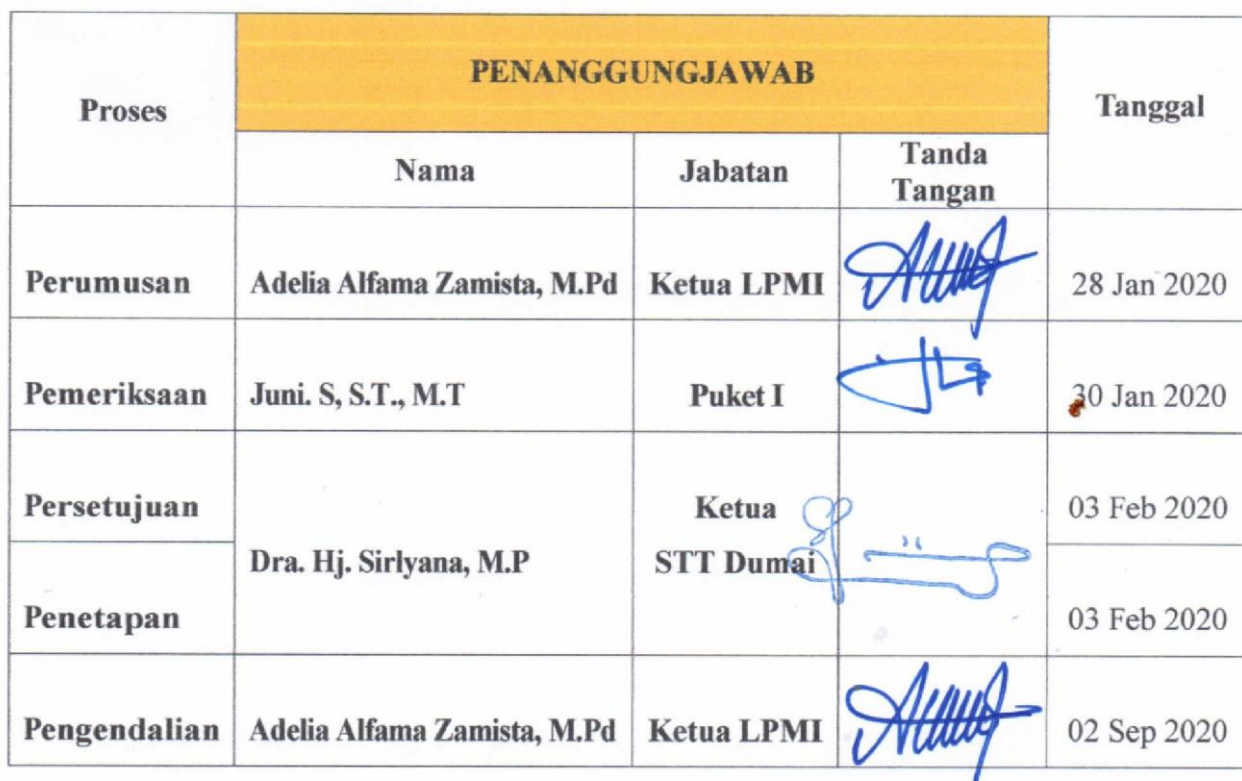 PENANGGUNGJAWAB
Proses
Tanggal
Nama
Jabatan
Tanda
Tangan
Perumusan
Adelia Alfama Zamista, M.Pd
Ketua LPMI
28 Jan 2020
Pemeriksaan
Juni. S, S.T., M.T
Puket I
30 Jan 2020
Persetujuan
Ketua
03 Feb 2020
Dra. Hj. Sirlyana, M.P
STT Dumai
Penetapan
03 Feb 2020
Pengendalian
Adelia Alfama Zamista, M.Pd
Ketua LPMI
02 Sep 2020